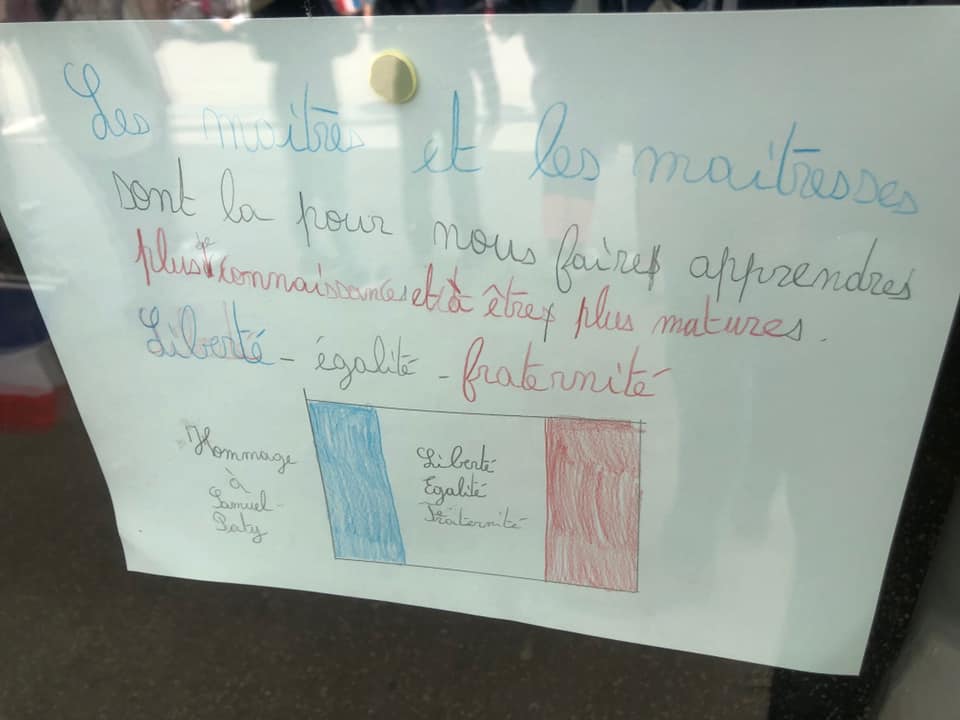 Les maitrês et les maitresses
sont la pour nous faire apprendres
plus de connaissances et à être plus matures.
Liberté - égalité - fraternité
Hommage
à
Samuel-
Paty
Liberté
Egalité
Fraternité